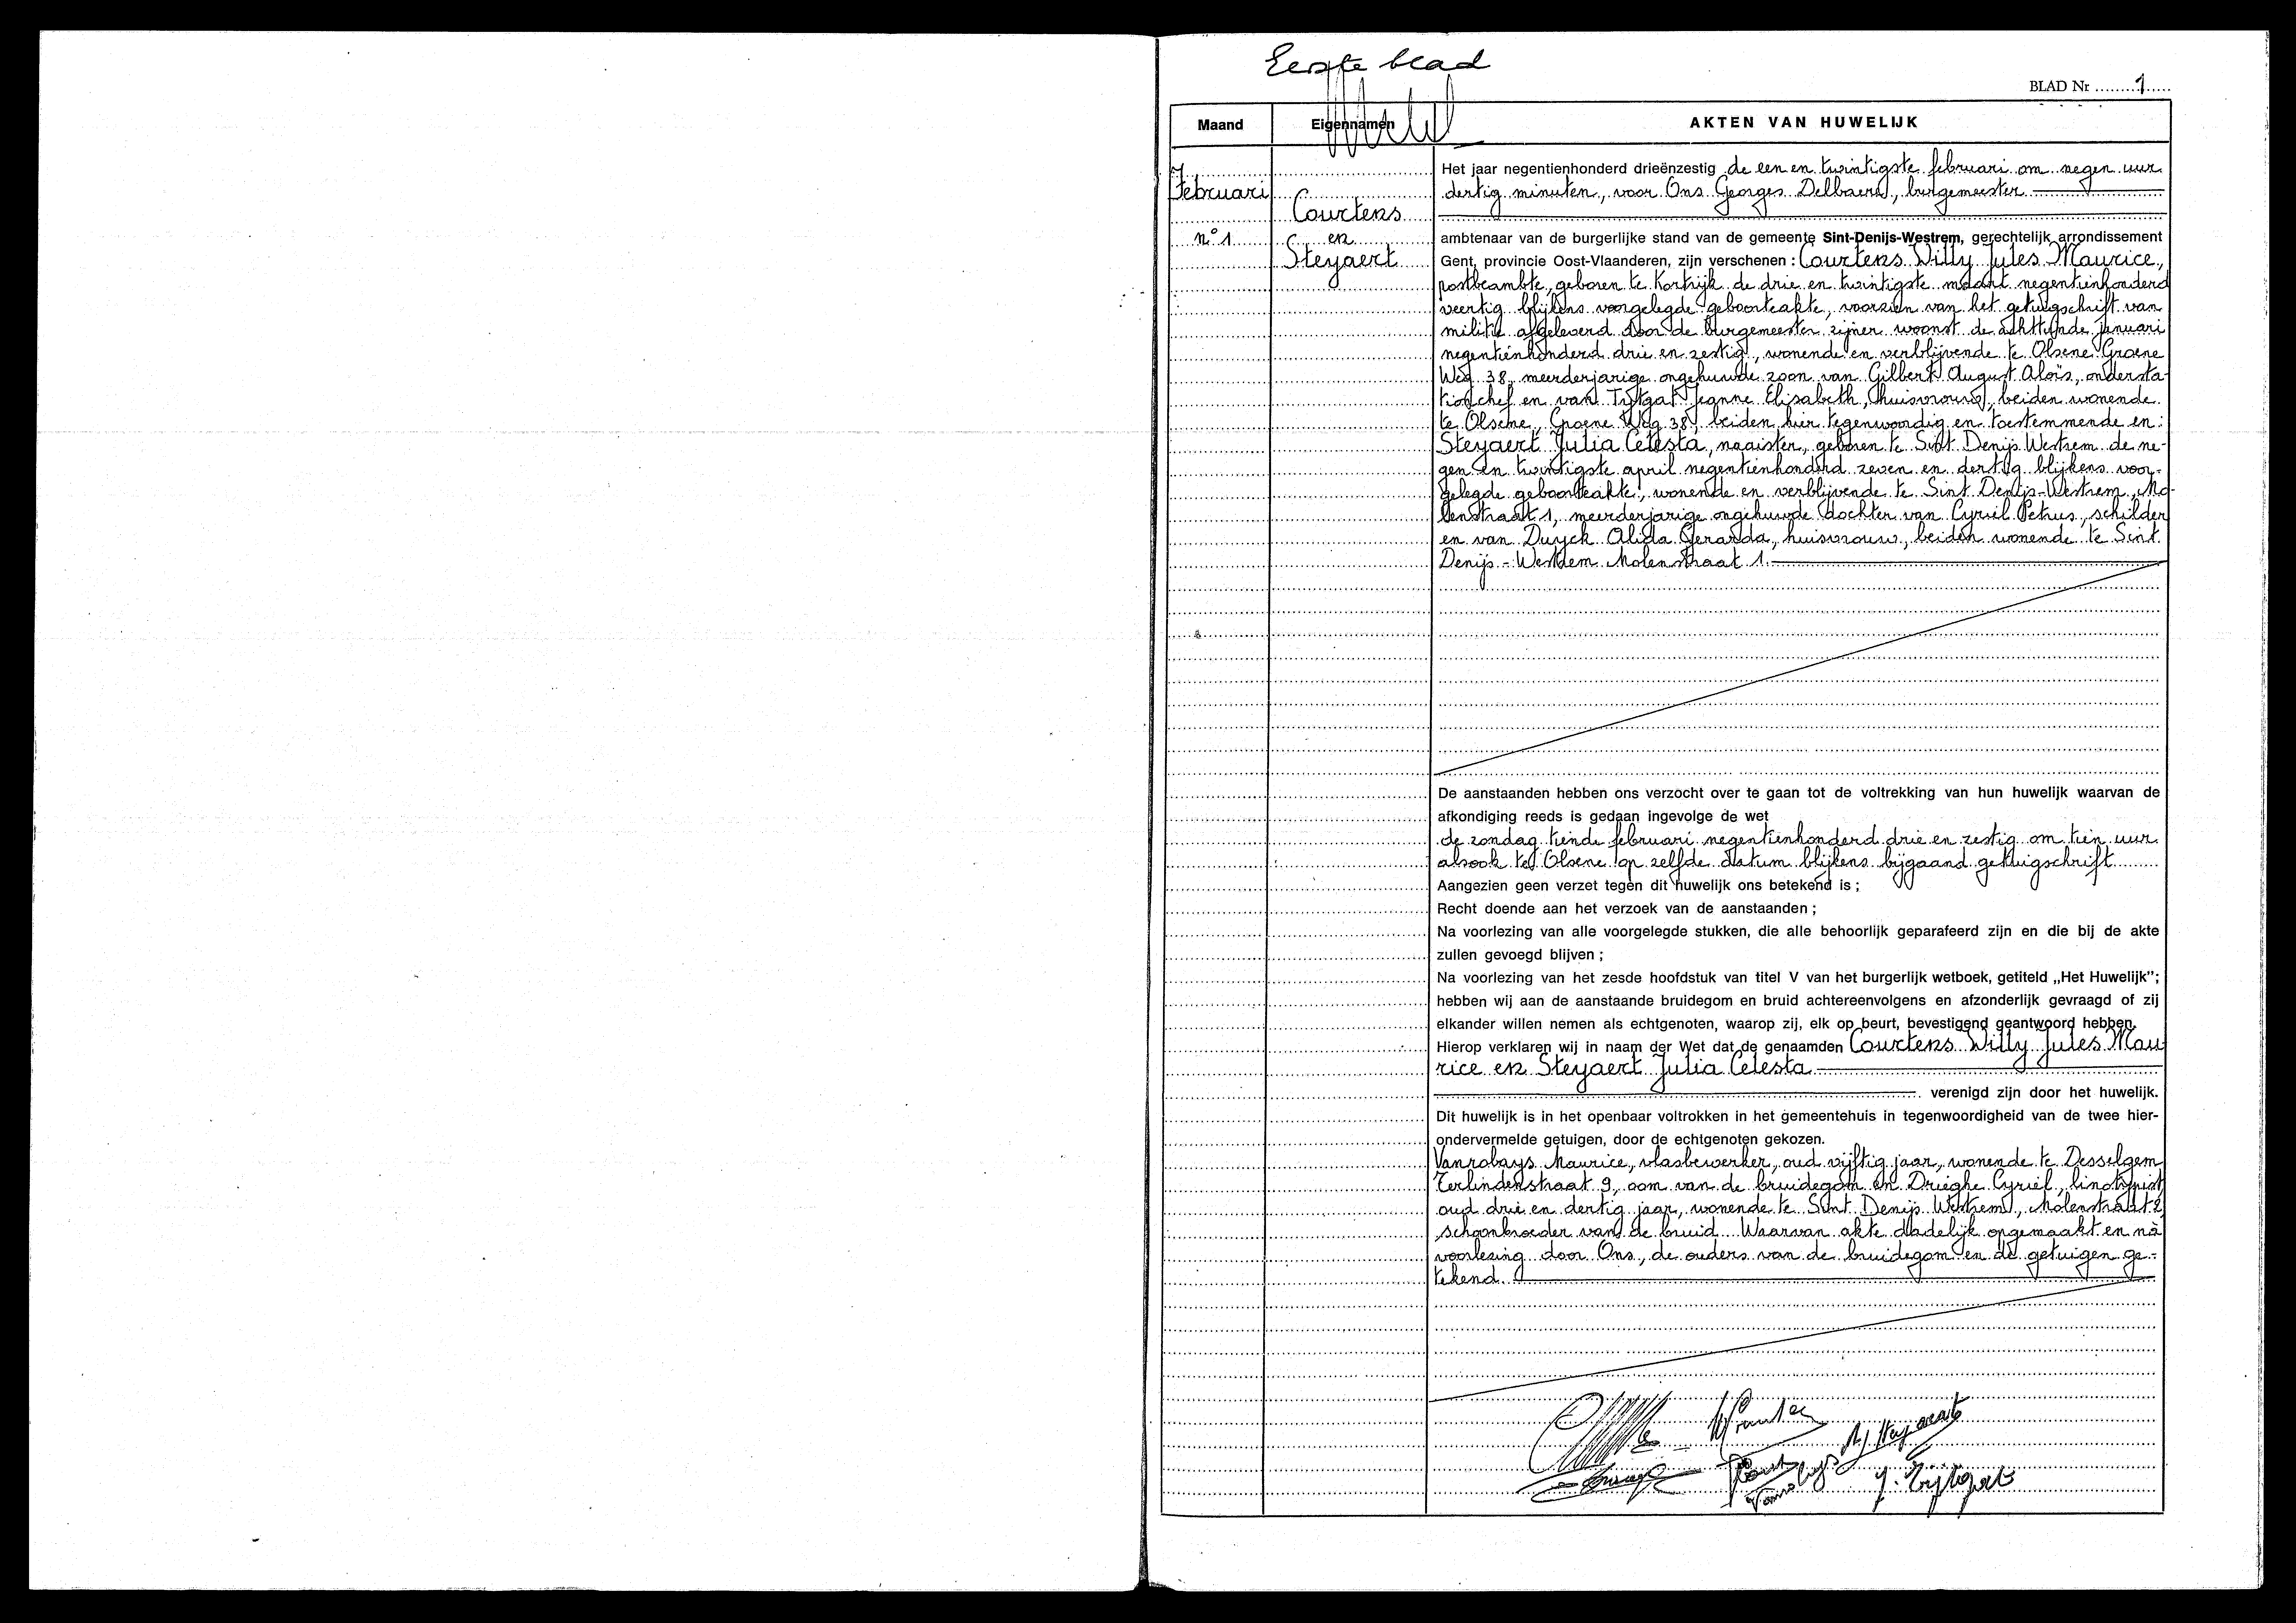 Eerste blad
BLAD Nr 1
Maand
Eigennamen
AKTEN VAN HUWELIJK
Februari
n° 1
Courtens
en
Steyaert
Het jaar negentienhonderd drieënzestig de een en twintigste februari om negen uur
dertig minuten, voor Ons Georges Delbaere, burgemeester
ambtenaar van de burgerlijke stand van de gemeente Sint-Denijs-Westrem, gerechtelijk arrondissement
Gent, provincie Oost-Vlaanderen, zijn verschenen : Courtens Willy Jules Maurice,
postbeambte, geboren te Kortrijk de drie en twintigste maart negentienhonderd
veertig blijkens voorgelegde geboorteakte, voorzien van het getuigschrift van
militie afgeleverd door de burgemeester zijner woonst de achttiende januari
negentienhonderd drie en zestig, wonende en verblijvende te Olsene Groene
Weg 38, meerderjarige ongehuwde zoon van Gilbert August Aloïs, ondersta-
tiechef en van Tijtgat Jeanne Elisabeth, huisvrouw, beiden wonende
te Olsene, Groene Weg 38, beiden hier tegenwoordig en toestemmende en :
Steyaert Julia Celesta, naaister, geboren te Sint Denijs Westrem de ne-
gen en twintigste april negentienhonderd zeven en dertig blijkens voor-
gelegde geboorteakte, wonende en verblijvende te Sint Denijs-Westrem, Mo-
lenstraat 1, meerderjarige ongehuwde dochter van Cyriel Petrus, schilder
en van Duyck Alida Gerarda, huisvrouw, beiden wonende te Sint
Denijs - Westrem Molenstraat 1.
De aanstaanden hebben ons verzocht over te gaan tot de voltrekking van hun huwelijk waarvan de
afkondiging reeds is gedaan ingevolge de wet
de zondag tiende februari negentienhonderd drie en zestig om tien uur
alsook te Olsene op zelfde datum blijkens bijgaand getuigschrift
Aangezien geen verzet tegen dit huwelijk ons betekend is ;
Recht doende aan het verzoek van de aanstaanden ;
Na voorlezing van alle voorgelegde stukken, die alle behoorlijk geparafeerd zijn en die bij de akte
zullen gevoegd blijven ;
Na voorlezing van het zesde hoofdstuk van titel V van het burgerlijk wetboek, getiteld „Het Huwelijk";
hebben wij aan de aanstaande bruidegom en bruid achtereenvolgens en afzonderlijk gevraagd of zij
elkander willen nemen als echtgenoten, waarop zij, elk op beurt, bevestigend geantwoord hebben.
Hierop verklaren wij in naam der Wet dat de genaamden Courtens Willy Jules Mau
rice en Steyaert Julia Celesta
verenigd zijn door het huwelijk.
Dit huwelijk is in het openbaar voltrokken in het gemeentehuis in tegenwoordigheid van de twee hier-
ondervermelde getuigen, door de echtgenoten gekozen.
Vanrobays Maurice, vlasbewerker, oud vijftig jaar, wonende te Desselgem
Terlindenstraat 9, oom van de bruidegom en Drieghe Cyriel, linotypist
oud drie en dertig jaar, wonende te Sint Denijs Westrem, Molenstraat 2,
schoonbroeder van de bruid. Waarvan akte dadelijk opgemaakt en nà
voorlezing door Ons, de ouders van de bruidegom en de getuigen ge-
tekend.
J. Tijtgat